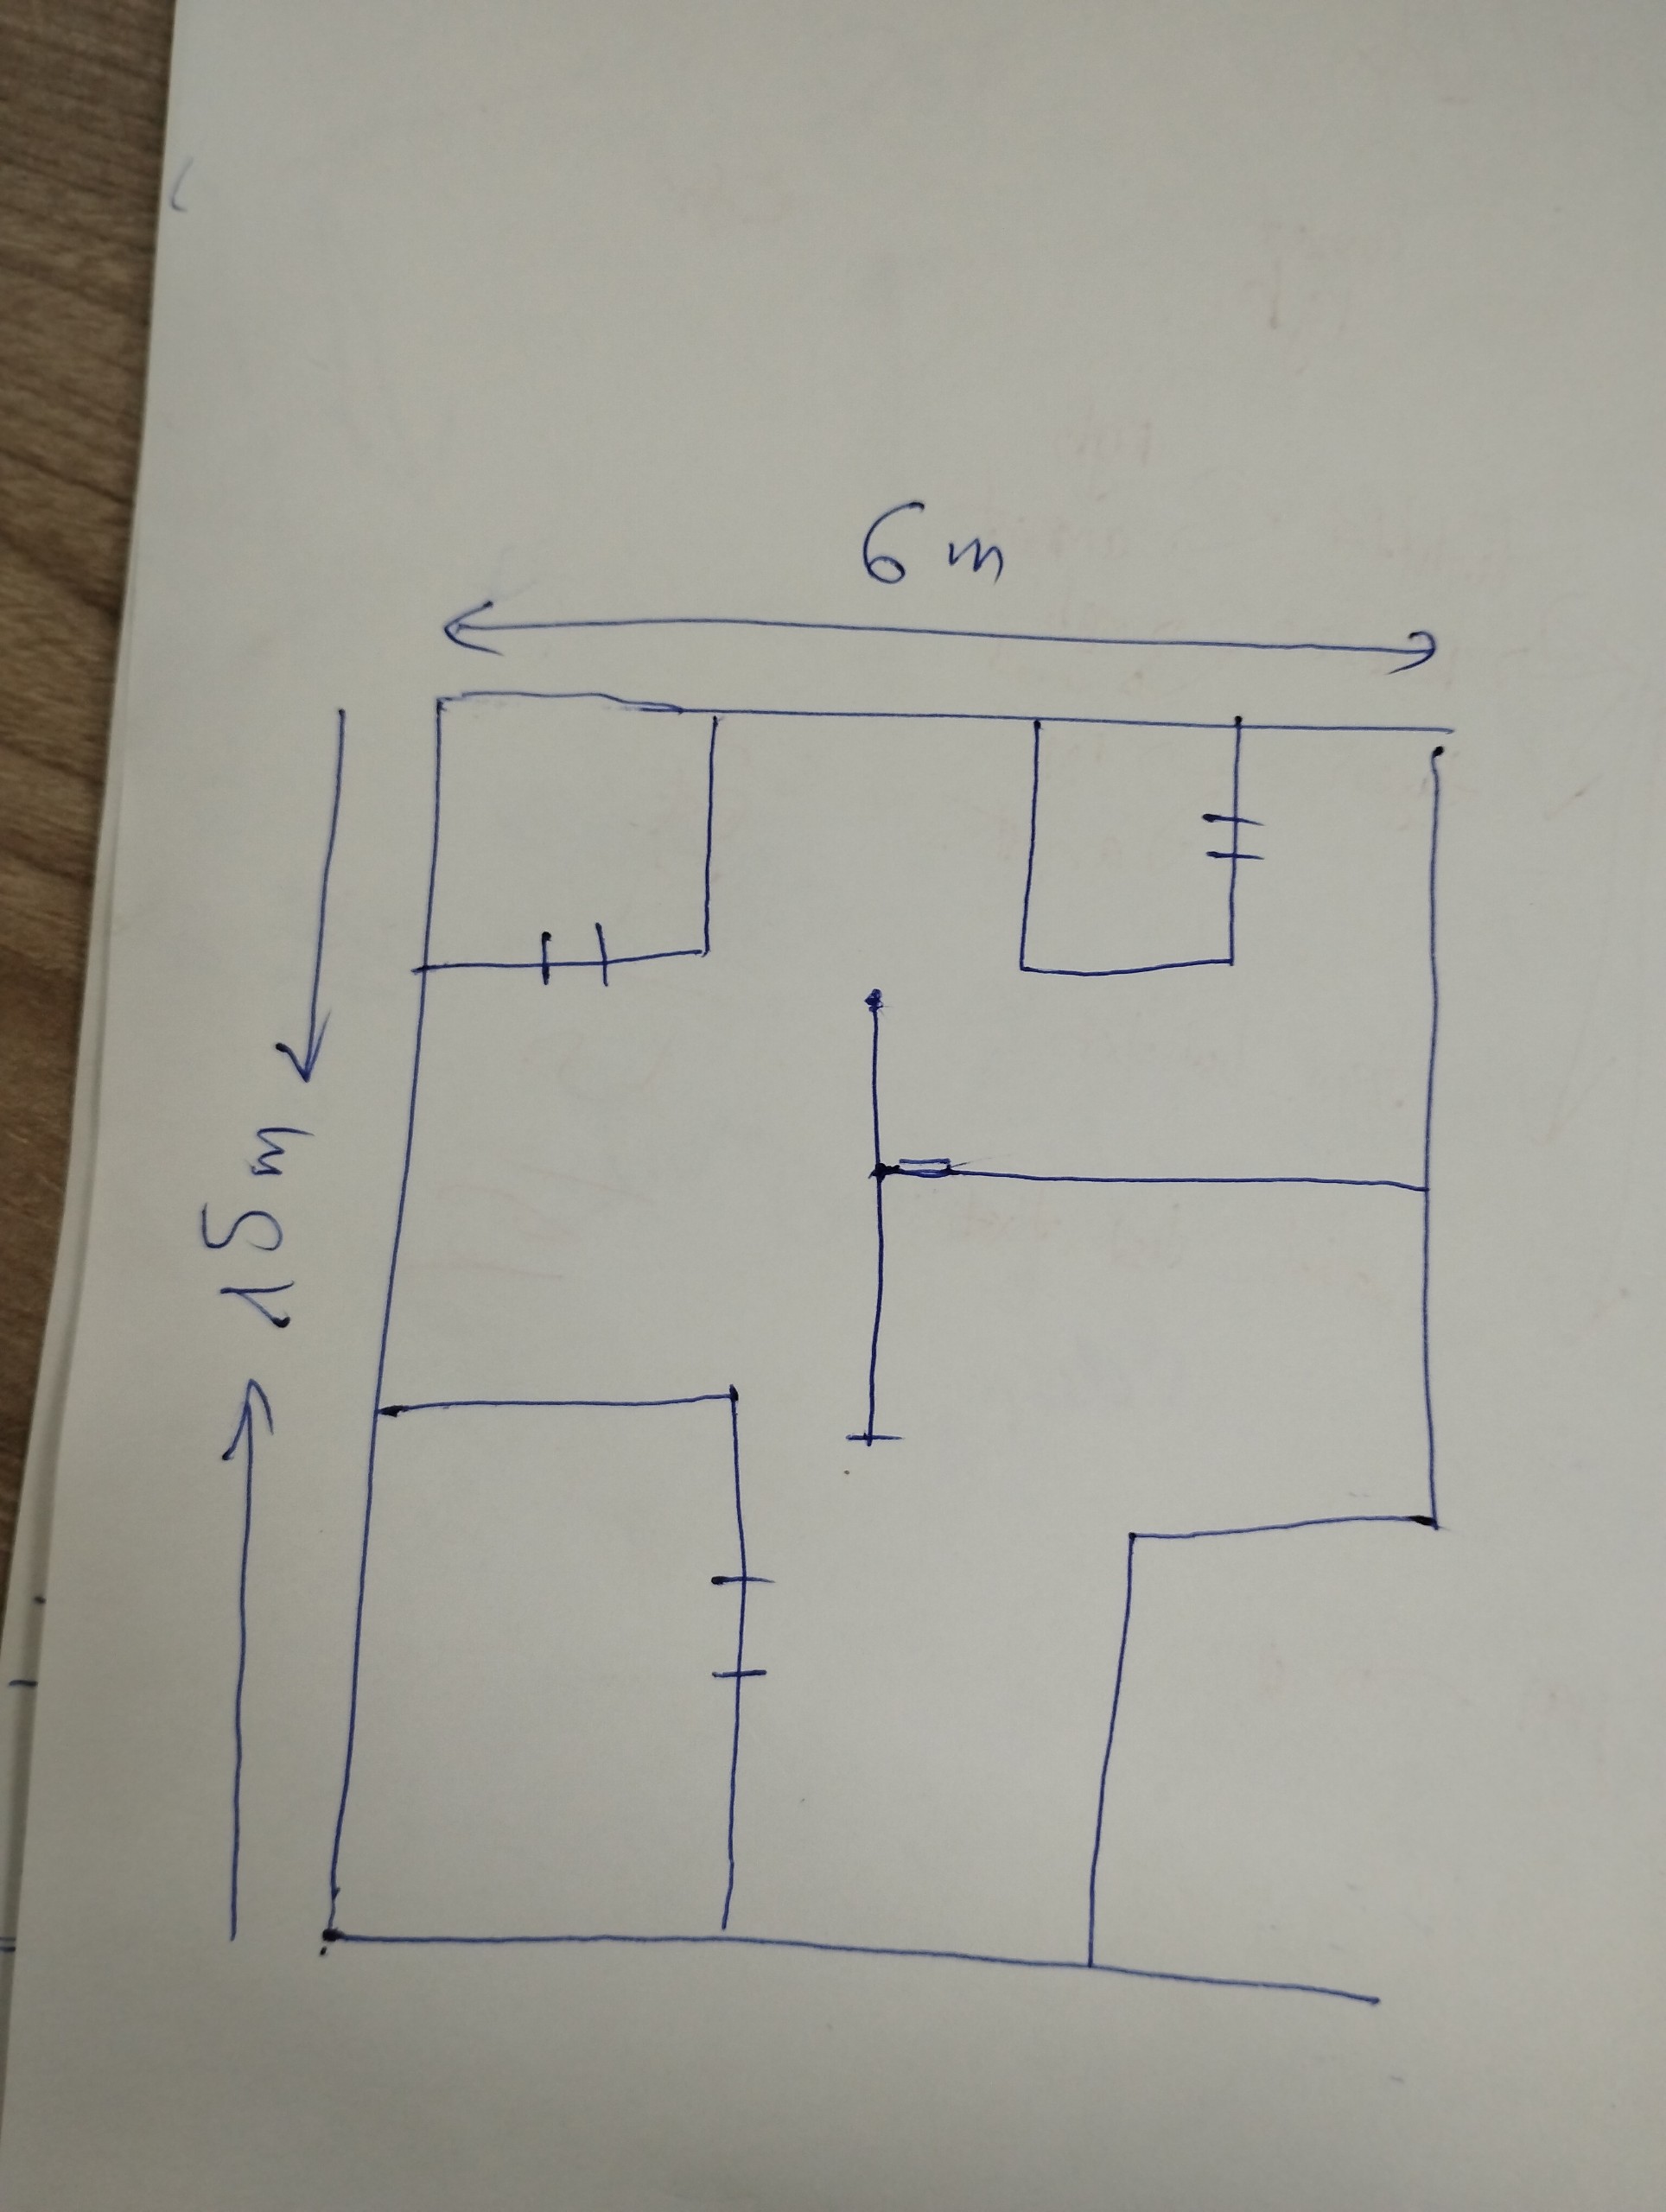 6 m
15 m